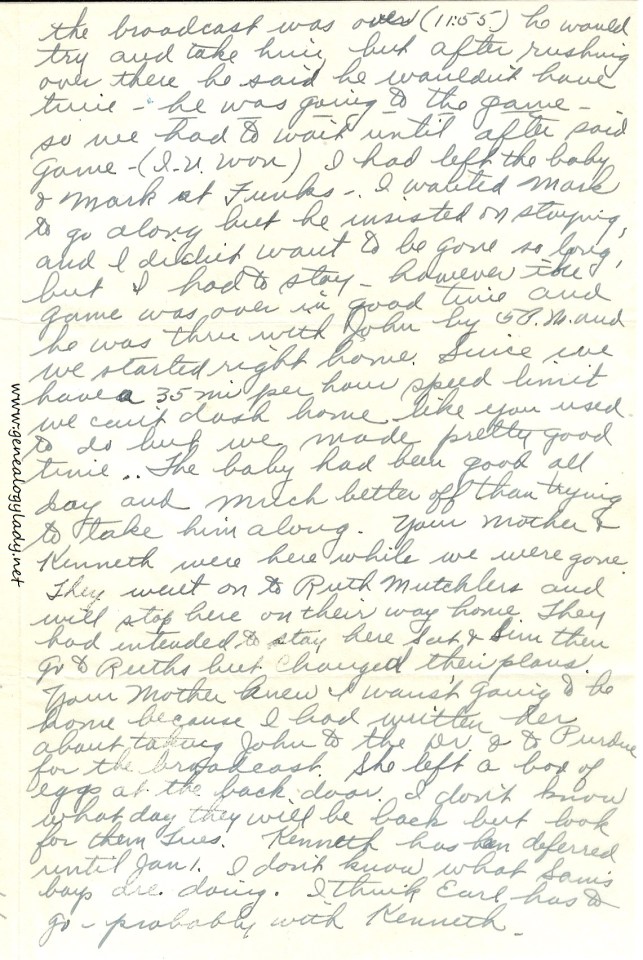 the broadcast was over (11:55) he would
try and take him, but after rushing
over there he said he wouldn't have
time - he was going to the game -
so we had to wait until after said
game - (I.U. won) I had left the baby
& Mark at Funks - I wanted Mark
to go along but he insisted on staying,
and I didn't want to be gone so long,
but I had to stay - however the
game was over in good time and
he was thru with John by 5 P.M. and
we started right home. Since we
have a 35 mi per hour speed limit
we can't dash home like you used
to do but we made pretty good
time .. The baby had been good all
day and much better off than trying
to take him along. Your Mother &
Kenneth were here while we were gone
They went on to Ruth Mutchlers and
will stop here on their way home. They
had intended to stay here Sat & Sun then
go to Ruths but changed their plans.
Your Mother knew I wasn't going to be
home because I had written her
about taking John to the Dr. & to Purdue
for the broadcast. She left a box of
eggs at the back door. I don't know
what day they will be back but look
for them Tues. Kenneth has ben deferred
until Jan 1. I don't know what Sam's
boys are doing. I think Earl has to
go - probably with Kenneth -
www.genealogylady.net